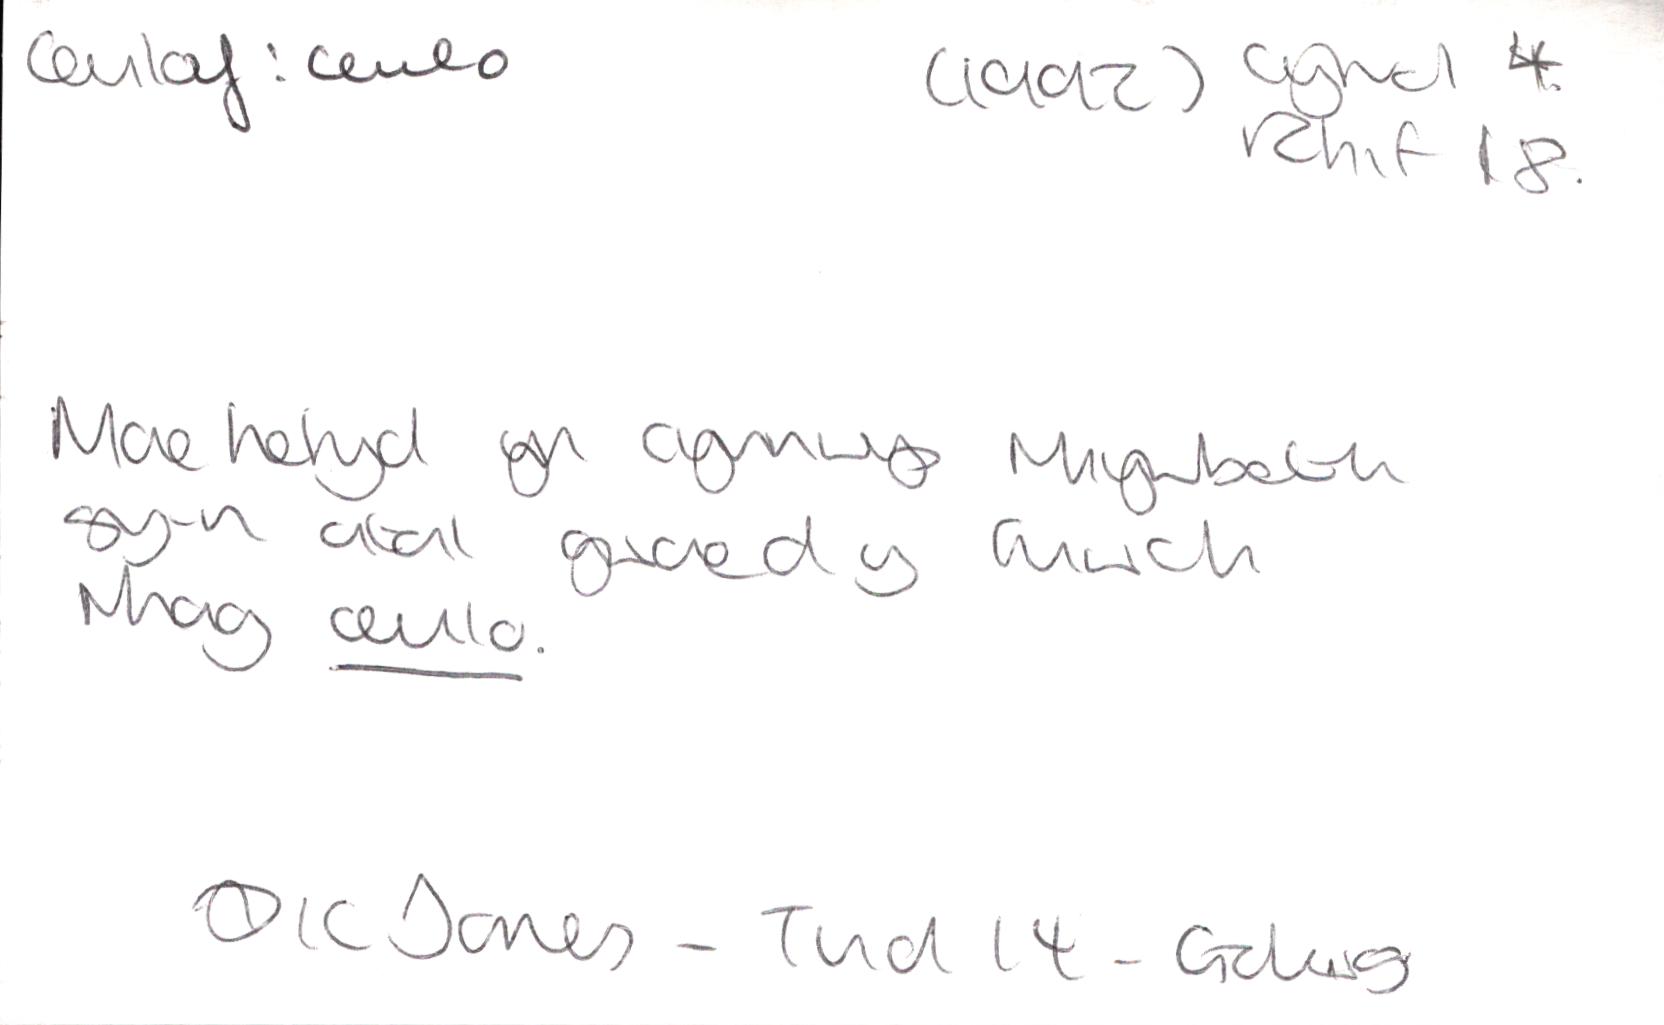 Ceulaf: ceulo (1992) Cyfrol 4.
Rhif 18.
Mae hefyd yn cynnwys rhywbeth
sy'n atal gwaed y fuwch
rhag ceulo.
Dic Jones - Tud 14 - Golwg